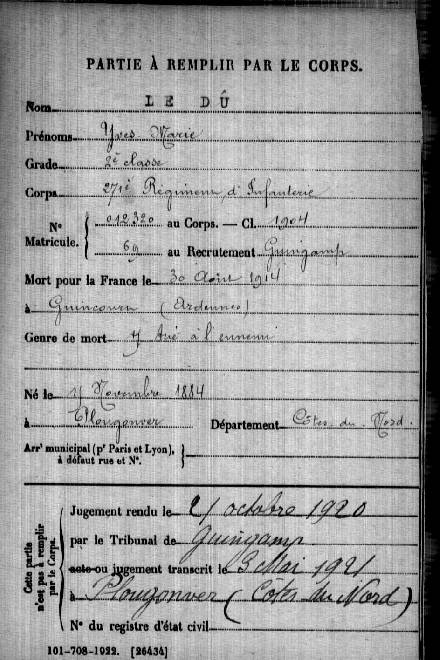 PARTIE À REMPLIR PAR LE CORPS.
Nom LE DÛ
Prénoms Yves Marie
Grade 2e classe
Corps 271e Régiment d'Infanterie
Nº Matricule. 012320 au Corps. — Cl. 1904
69 au Recrutement Guingamp
Mort pour la France le 30 Août 1914
à Guincourt (Ardennes)
Genre de mort Tué à l'ennemi
Né le Novembre 1884
à Plougonver Département Côtes du Nord
Arrt municipal (pr Paris et Lyon),
à défaut rue et Nº.
Cette partie
n'est pas à remplir
par le Corps.
Jugement rendu le 21 octobre 1920
par le Tribunal de Guingamp
acte ou jugement transcrit le 3 Mai 1921
à Plougonver (Cotes du Nord)
Nº du registre d'état civil
101-708-1922. [26434]